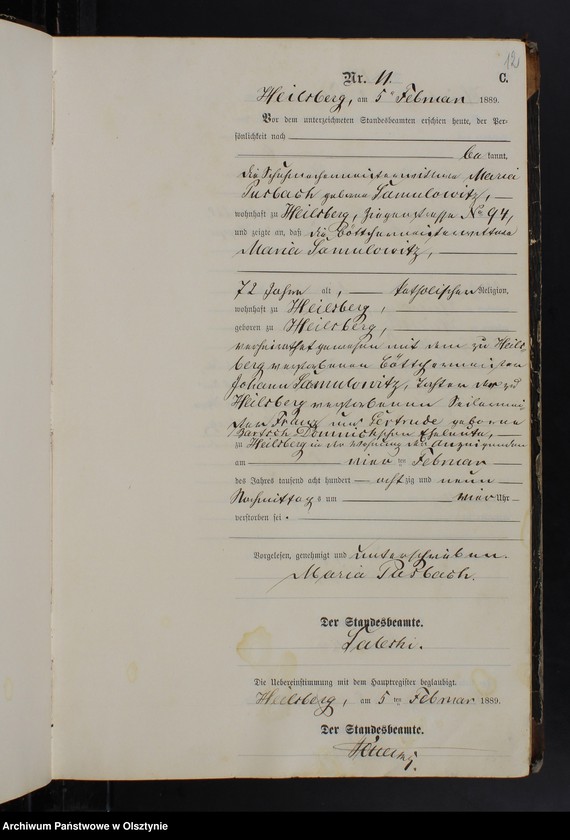 12
Nr. 11. C.
Heilsberg, am 5ten Februar 1889.
Vor dem unterzeichneten Standesbeamten erschien heute, der Per-
sönlichkeit nach
bekannt,
die Schuhmachermeisterwittwe Maria
Purbach geborne Samulowitz,
wohnhaft zu Heilsberg, Ziegenstraße No 94,
und zeigte an, daß die Böttchermeisterwittwe
Maria Samulowitz,
72 Jahre alt, katholischer Religion,
wohnhaft zu Heilsberg,
geboren zu Heilsberg,
verheirathet gewesen mit dem zu Heils-
berg verstorbenen Böttchermeister
Johann Samulowitz, Tochter der zu
Heilsberg verstorbenen Seilermei-
ster Franz und Gertrude geborne
Domnick'schen Eheleute,
zu Heilsberg in der Wohnung der Anzeigenden
am vierten Februar
des Jahres tausend acht hundert achtzig und neun
Nachmittags um vier Uhr
verstorben sei.
Vorgelesen, genehmigt und unterschrieben.
Maria Purbach.
Der Standesbeamte.
Die Uebereinstimmung mit dem Hauptregister beglaubigt.
Heilsberg, am 5ten Februar 1889.
Der Standesbeamte.
Archiwum Państwowe w Olsztynie